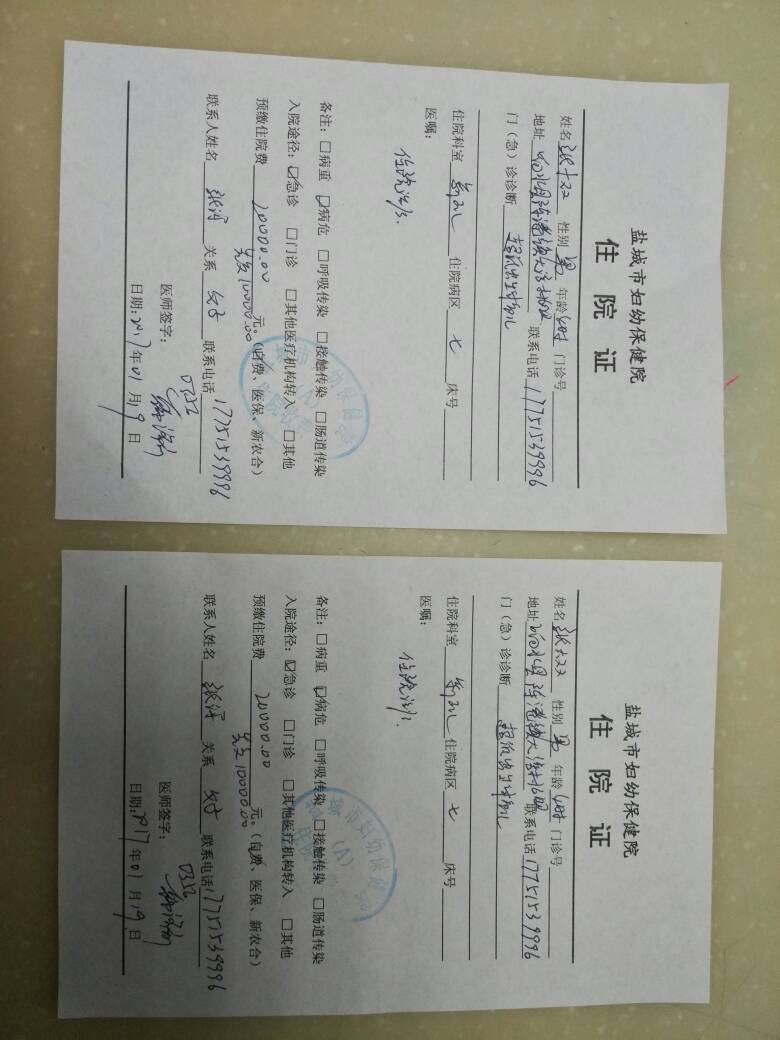 盐城市妇幼保健院
住院证
姓名 张 性别 男 年龄 时 门诊号
地址 响水县陈港镇 联系电话 17751539996
门（急）诊诊断 超低出生体重儿
住院科室 新生儿 住院病区 七 床号
医嘱：
住院治疗.
备注：□病重 ☑病危 □呼吸传染 □接触传染 □肠道传染
入院途径：☑急诊 □门诊 □其他医疗机构转入 □其他
预缴住院费 20000.00 元。（自费、医保、新农合）
先交10000.00
联系人姓名 张 关系 父子 联系电话 17751539996
医师签字：
0352
日期：2017年01月19日
盐城市妇幼保健院
住院证
姓名 张 性别 男 年龄 时 门诊号
地址 响水县陈港镇 联系电话 17751539996
门（急）诊诊断 超低出生体重儿
住院科室 新生儿 住院病区 七 床号
医嘱：
住院治疗.
备注：□病重 ☑病危 □呼吸传染 □接触传染 □肠道传染
入院途径：☑急诊 □门诊 □其他医疗机构转入 □其他
预缴住院费 20000.00 元。（自费、医保、新农合）
先交10000.00
联系人姓名 张 关系 父子 联系电话 17751539996
医师签字：
0352
日期：2017年01月19日